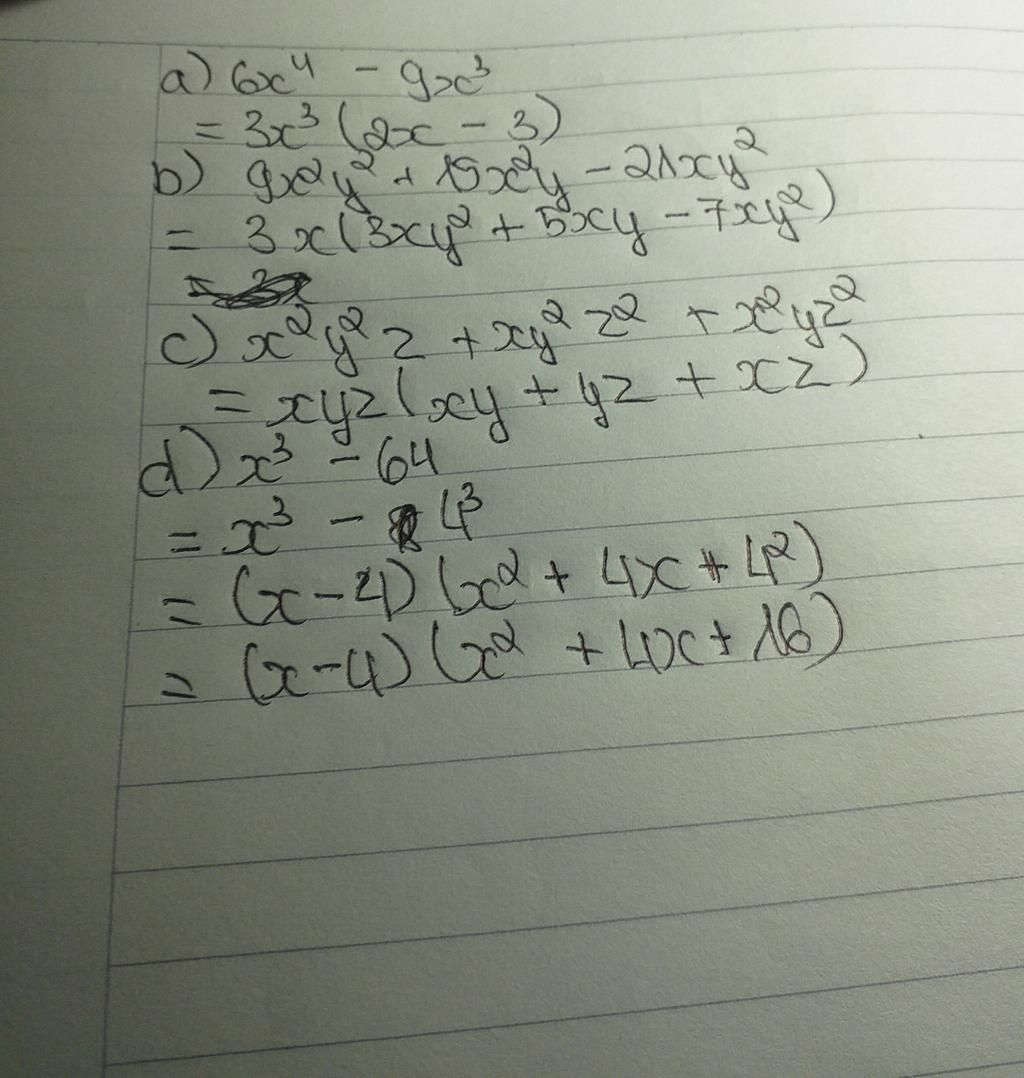 a) 6x⁴ - 9x³
= 3x³ (2x - 3)
b) 9x²y² + 15x²y - 21xy²
= 3x(3xy² + 5xy - 7xy²)
c) x²y²z + xy²z² + x²yz²
= xyz(xy + yz + xz)
d) x³ - 64
= x³ - 4³
= (x-4) (x² + 4x + 4²)
= (x-4) (x² + 4x + 16)